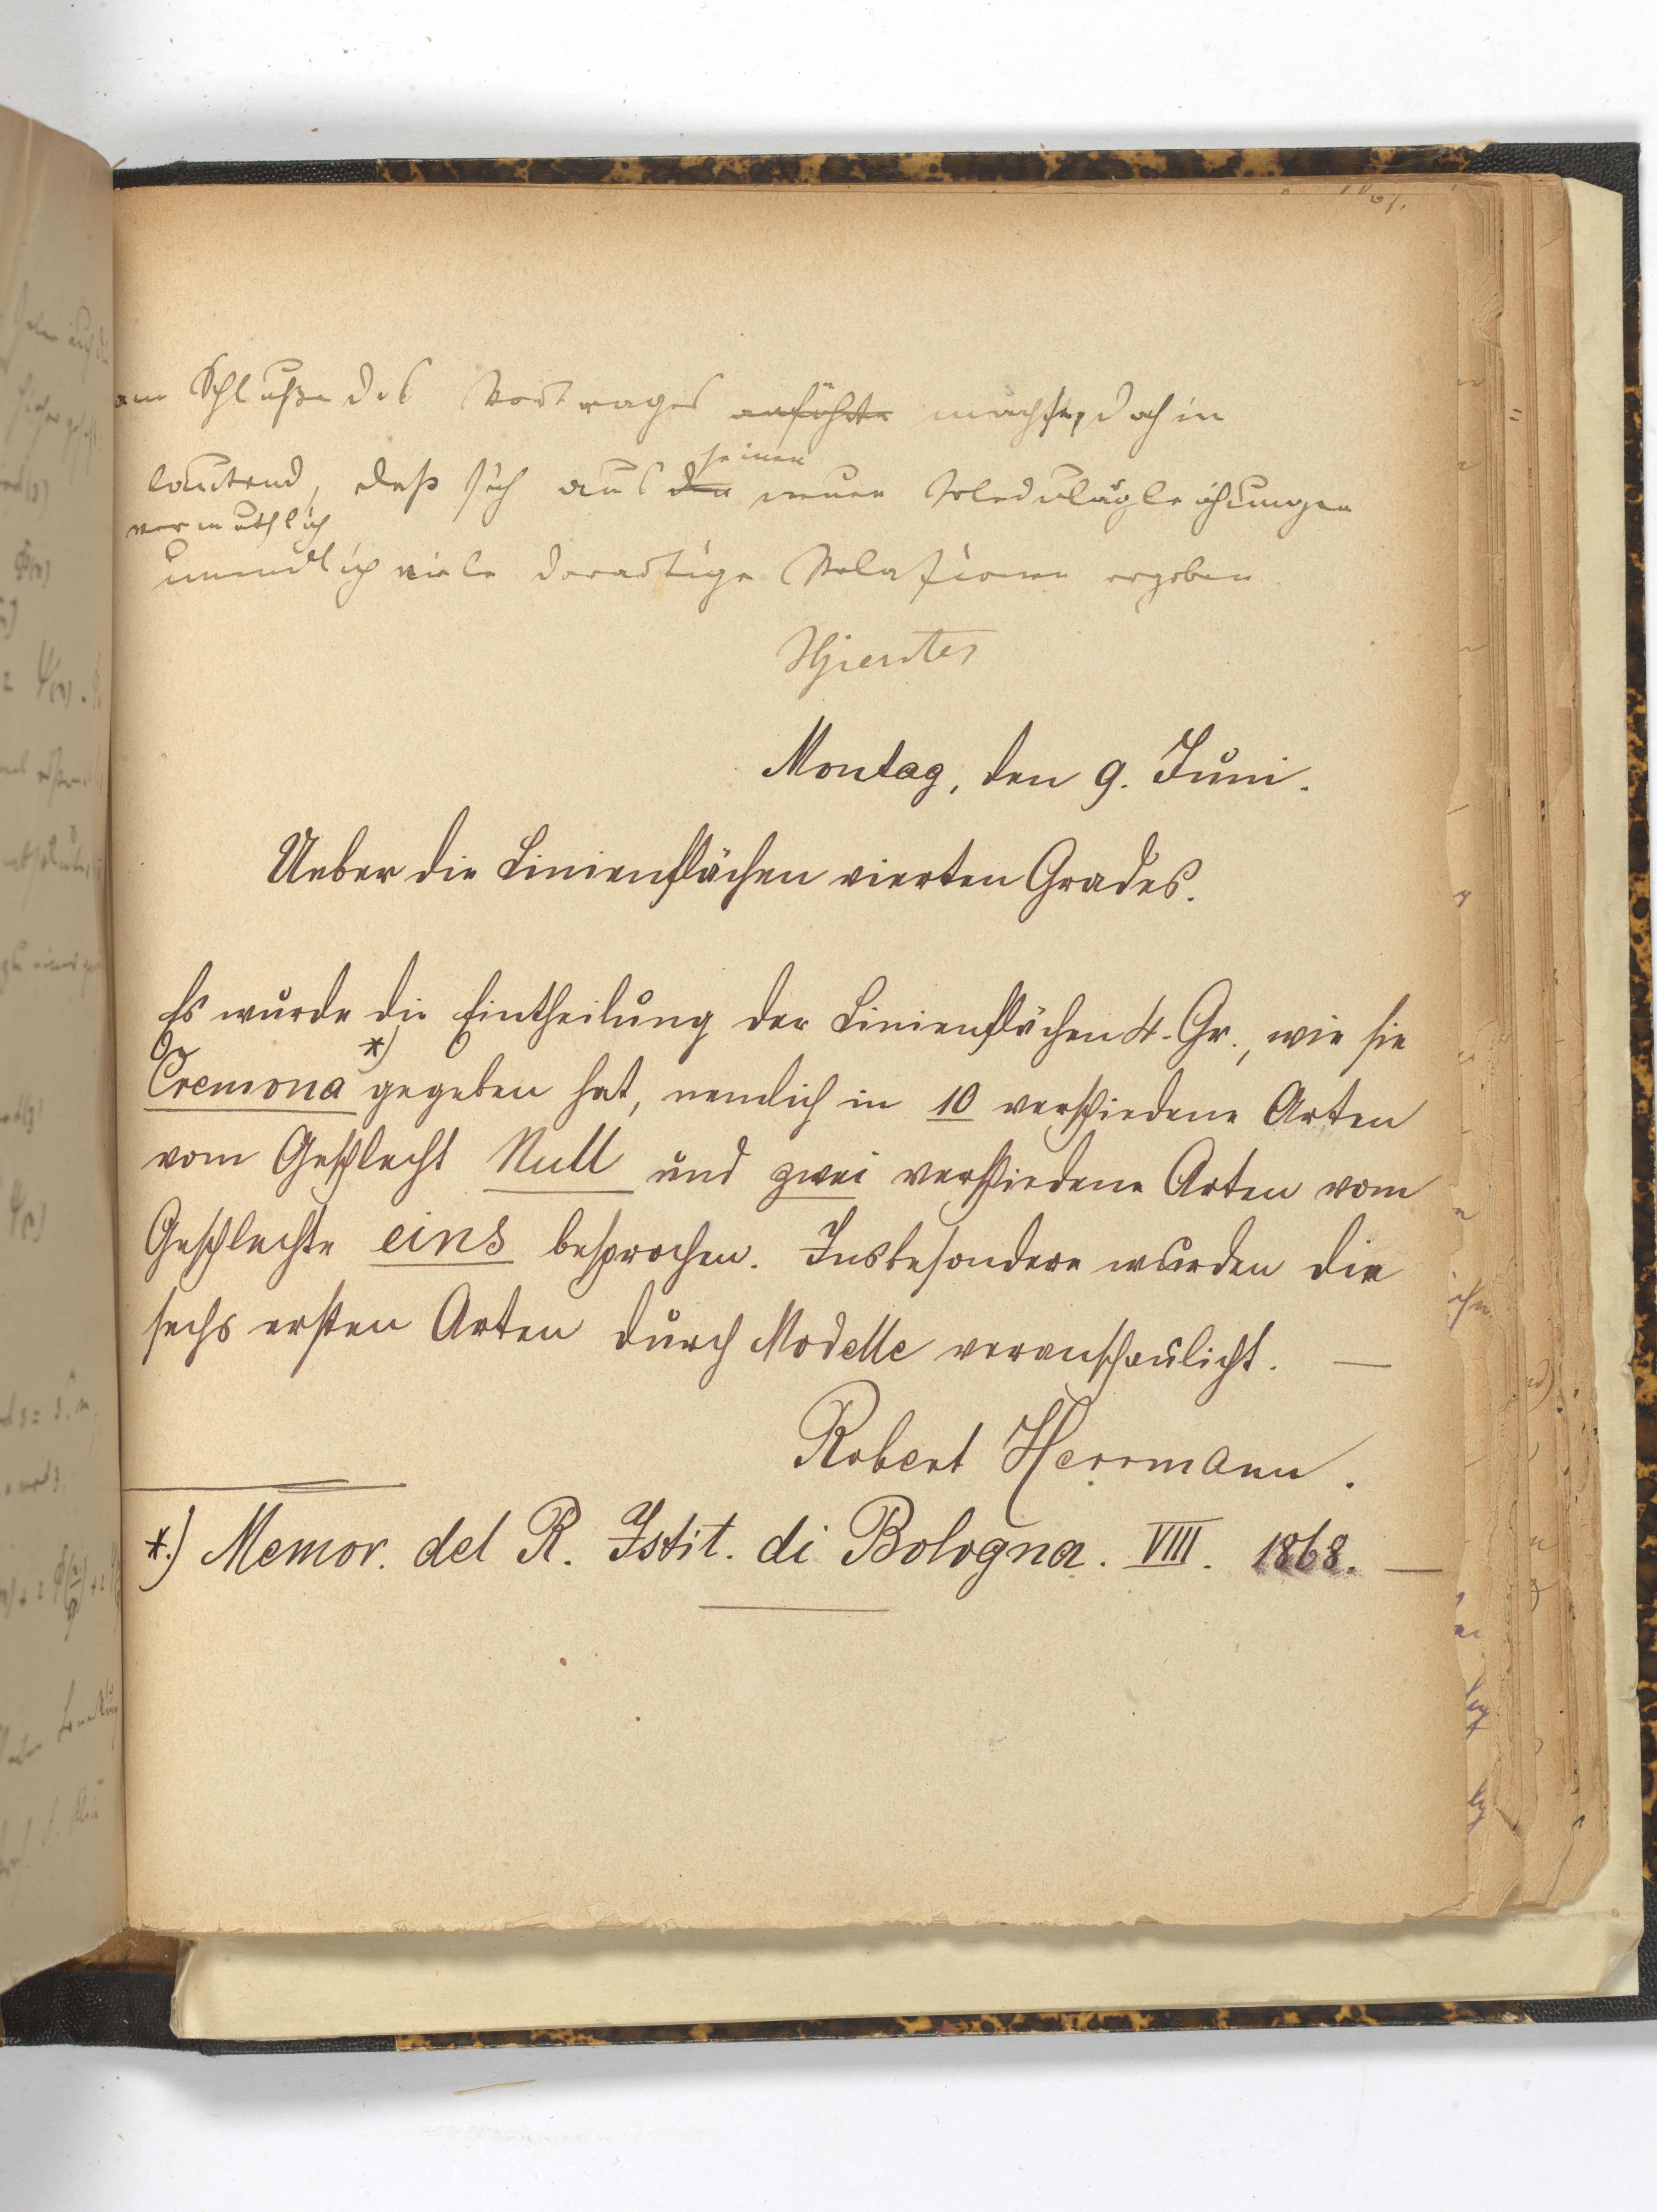 am Schluße des Vortrages anführte machte, dahin
lautend, daß sich aus den seinen neuen Modulargleichungen
vermuthlich
unendlich viele derartige Relationen ergeben
Montag, den 9. Juni.
Ueber die Linienflächen vierten Grades.
Es wurde die Eintheilung der Linienflächen 4. Gr., wie sie
Cremona *) gegeben hat, nemlich in 10 verschiedene Arten
vom Geschlecht Null und zwei verschiedene Arten vom
Geschlechte eins besprochen. Insbesondere wurden die
sechs ersten Arten durch Modelle veranschaulicht. —
Robert Herrmann.
*.) Memor. del R. Istit. di Bologna. VIII. 1868. —